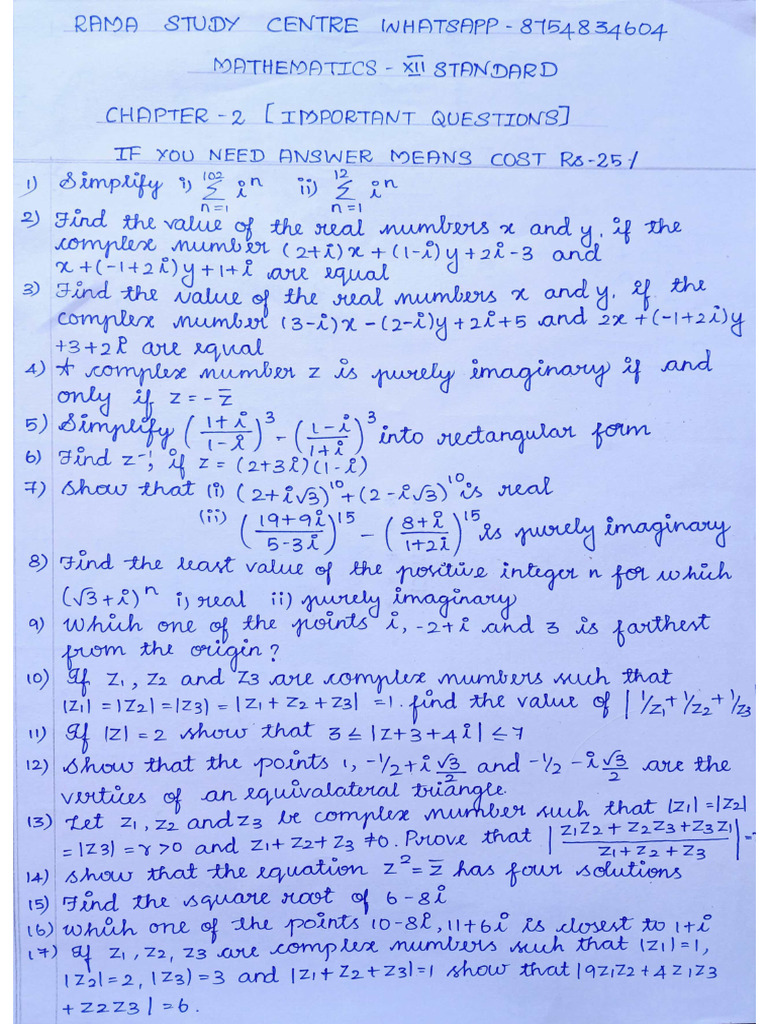 RAMA STUDY CENTRE WHATSAPP - 8754834604
MATHEMATICS - XII STANDARD
CHAPTER - 2 [IMPORTANT QUESTIONS]
IF YOU NEED ANSWER MEANS COST Rs-25/
1) Simplify i) 102 Σ n=1 i^n ii) 12 Σ n=1 i^n
2) Find the value of the real numbers x and y, if the
complex number (2+i)x + (1-i)y + 2i - 3 and
x + (-1+2i)y + 1 + i are equal
3) Find the value of the real numbers x and y, if the
complex number (3-i)x - (2-i)y + 2i + 5 and 2x + (-1+2i)y
+3+2i are equal
4) A complex number z is purely imaginary if and
only if z = -z̅
5) Simplify ((1+i)/(1-i))^3 - ((1-i)/(1+i))^3 into rectangular form
6) Find z^-1, if z = (2+3i)(1-i)
7) Show that (i) (2+i√3)^10 + (2-i√3)^10 is real
(ii) ((19+9i)/(5-3i))^15 - ((8+i)/(1+2i))^15 is purely imaginary
8) Find the least value of the positive integer n for which
(√3+i)^n i) real ii) purely imaginary
9) Which one of the points i, -2+i and 3 is farthest
from the origin?
10) If z1, z2 and z3 are complex numbers such that
|z1| = |z2| = |z3) = |z1 + z2 + z3| = 1. find the value of | 1/z1 + 1/z2 + 1/z3
11) If |z| = 2 show that 3 ≤ |z+3+4i| ≤ 7
12) Show that the points 1, -1/2 + i √3/2 and -1/2 - i √3/2 are the
vertices of an equivalateral triangle.
13) Let z1, z2 and z3 be complex number such that |z1| = |z2|
= |z3| = r > 0 and z1 + z2 + z3 ≠ 0. Prove that |(z1z2 + z2z3 + z3z1)/(z1 + z2 + z3)| =
14) Show that the equation z^2 = z̅ has four solutions
15) Find the square root of 6-8i
16) which one of the points 10-8i, 11+6i is closest to 1+i
17) If z1, z2, z3 are complex numbers such that |z1| = 1,
|z2| = 2, |z3) = 3 and |z1 + z2 + z3| = 1 show that |9z1z2 + 4z1z3
+ z2z3| = 6.